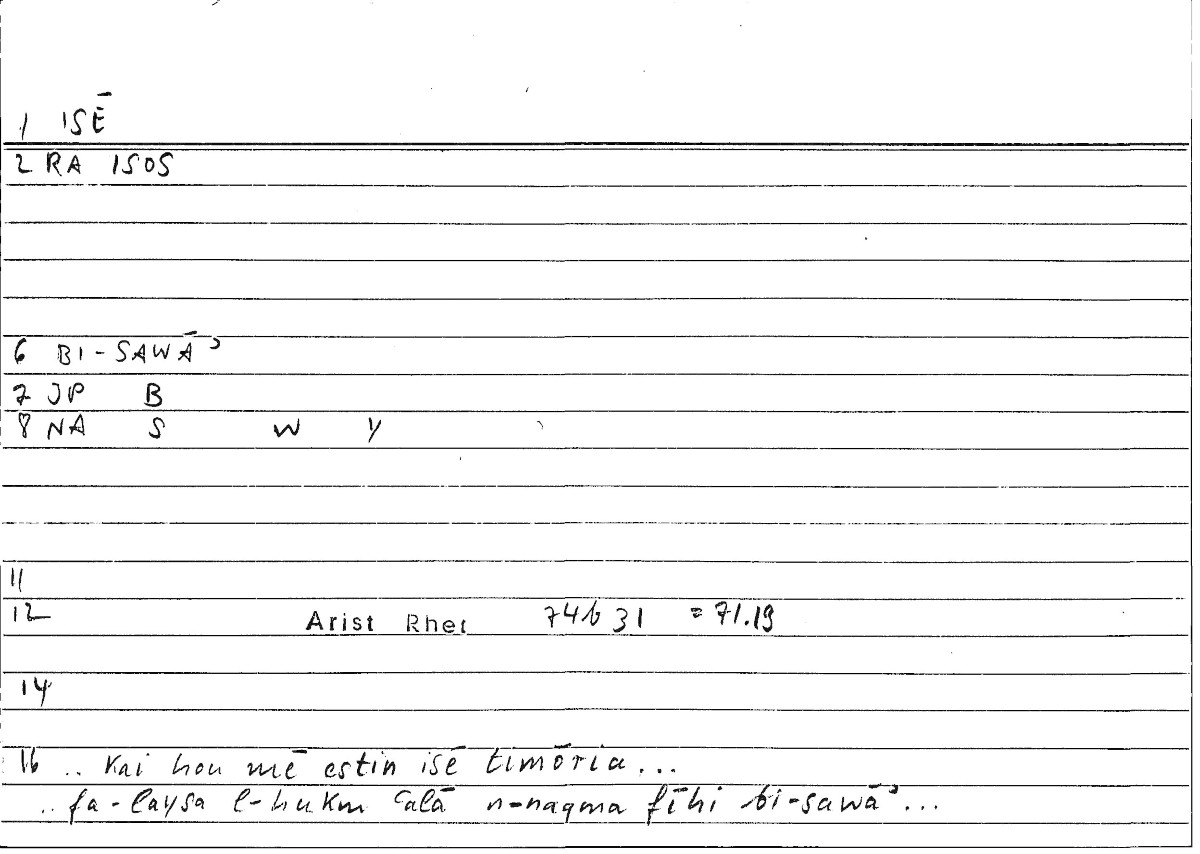 1 ISĒ
2 RA ISOS
6 BI-SAWĀʾ
7 JP B
8 NA S W Y
11
12 Arist Rhet 74b31 = 71.19
14
16 .. Kai hou mē estin isē timōria...
.. fa-laysa l-hukm ʿalā n-naqma fīhi bi-sawāʾ...